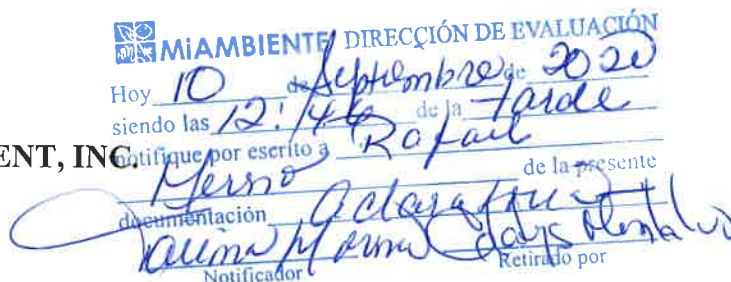 MiAMBIENTE DIRECCIÓN DE EVALUACIÓN
Hoy 10 de Septiembre de 2020
siendo las 12:44 de la tarde
ENT, INC. notifique por escrito a Rafael
de la presente
documentación Aclaratoria
Notificador Retirado por